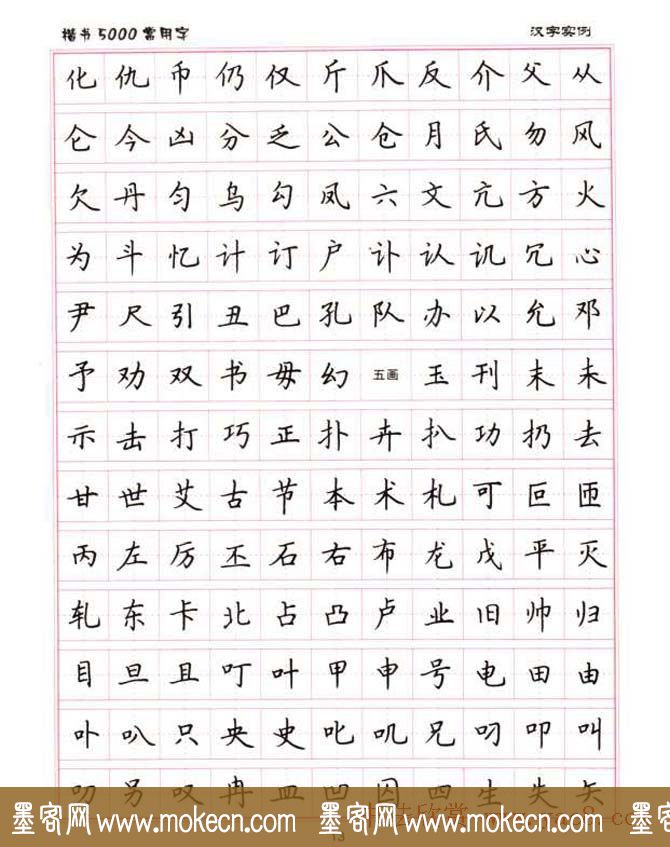 楷书5000常用字 汉字实例
化 仇 币 仍 仅 斤 爪 反 介 父 从
仑 今 凶 分 乏 公 仓 月 氏 勿 风
欠 丹 匀 乌 勾 凤 六 文 亢 方 火
为 斗 忆 计 订 户 讣 认 讥 冗 心
尹 尺 引 丑 巴 孔 队 办 以 允 邓
予 劝 双 书 毋 幻 五画 玉 刊 末 未
示 击 打 巧 正 扑 卉 扒 功 扔 去
甘 世 艾 古 节 本 术 札 可 叵 匝
丙 左 厉 丕 石 右 布 龙 戊 平 灭
轧 东 卡 北 占 凸 卢 业 旧 帅 归
目 旦 且 叮 叶 甲 申 号 电 田 由
卟 叭 只 央 史 叱 叽 兄 叼 叩 叫
叻 另 叹 冉 皿 凹 囚 四 生 失 矢
墨客网 www.mokecn.com 墨客网 www.mokecn.com
13